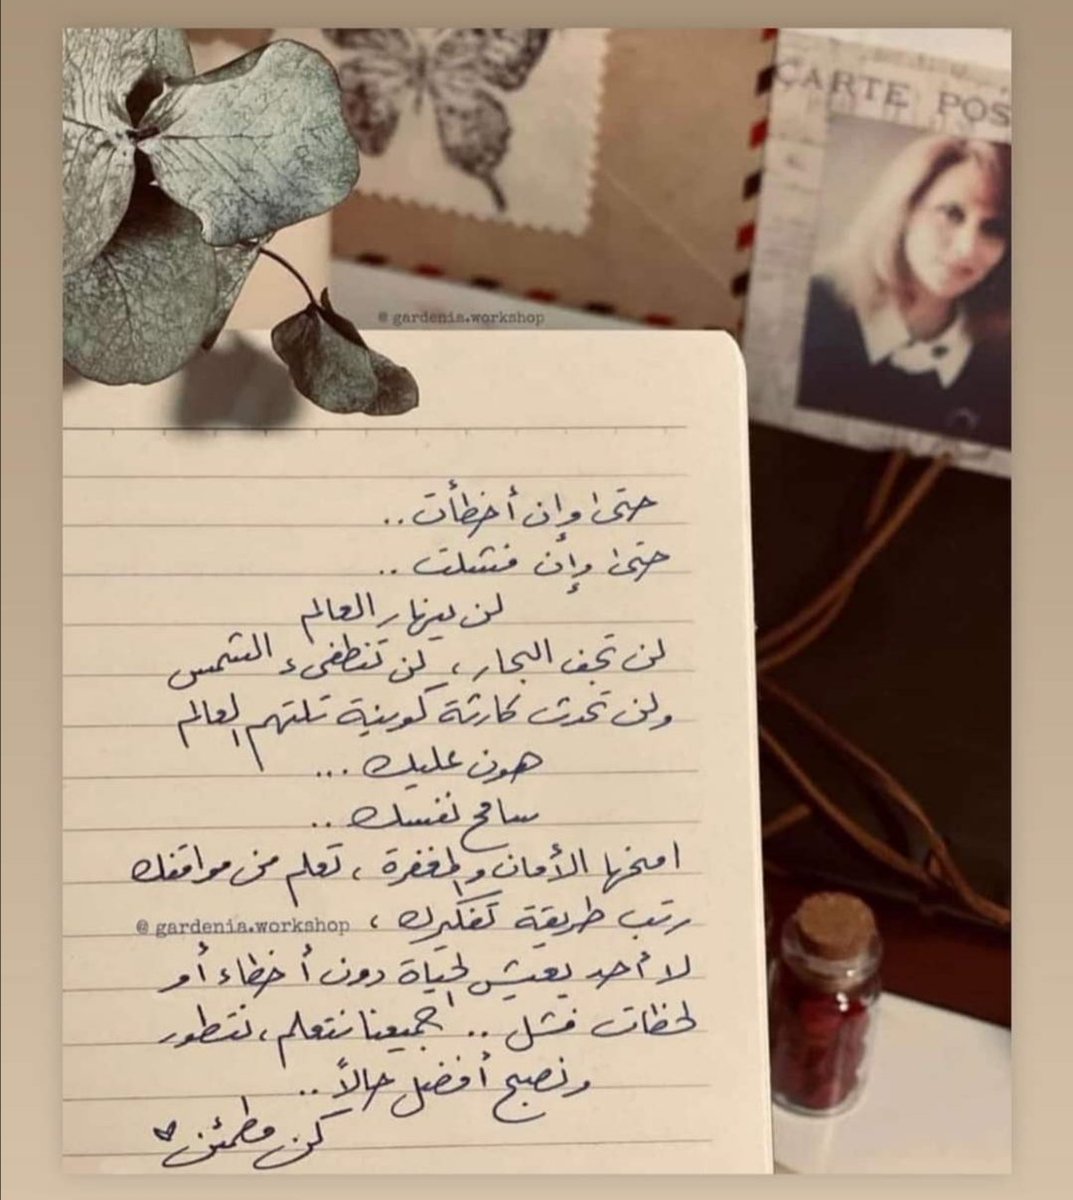 CARTE POS
@ gardenia.workshop
حتى وإن أخطأت ..
حتى وإن فشلت ..
لن ينهار العالم
لن تجف البحار، لن تنطفىء الشمس
ولن تحدث كارثة كونية تلتهم العالم
هون عليك ...
سامح نفسك ..
امنحها الأمان والمغفرة، تعلم من مواقفك
رتب طريقة تفكيرك،
@ gardenia.workshop
لا أحد يعيش الحياة دون أخطاء أو
لحظات فشل .. جميعنا نتعلم، نتطور
ونصبح أفضل حالاً ..
كن مطمئن